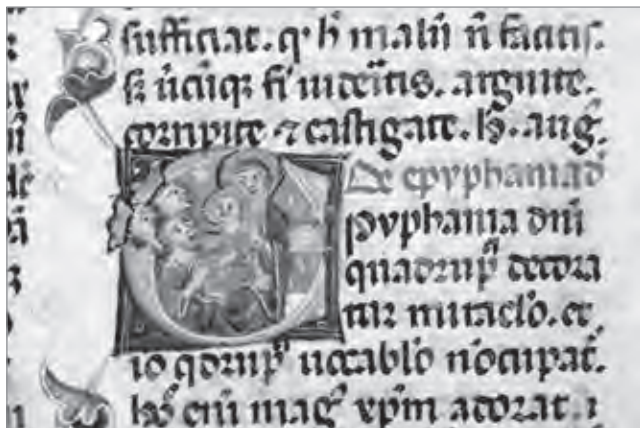 sufficiat. q' h̄ malū n̄ facitis.
arguite.
corripite ⁊ castigate. h̄. aug̃
De epyphania d̄
pyphania dn̄i
quadrup̄ decora
tur miraclo. et
io qdrup̄ uocablo nōcupat̄.
enī mag̃ xp̄m adorat. ⁊